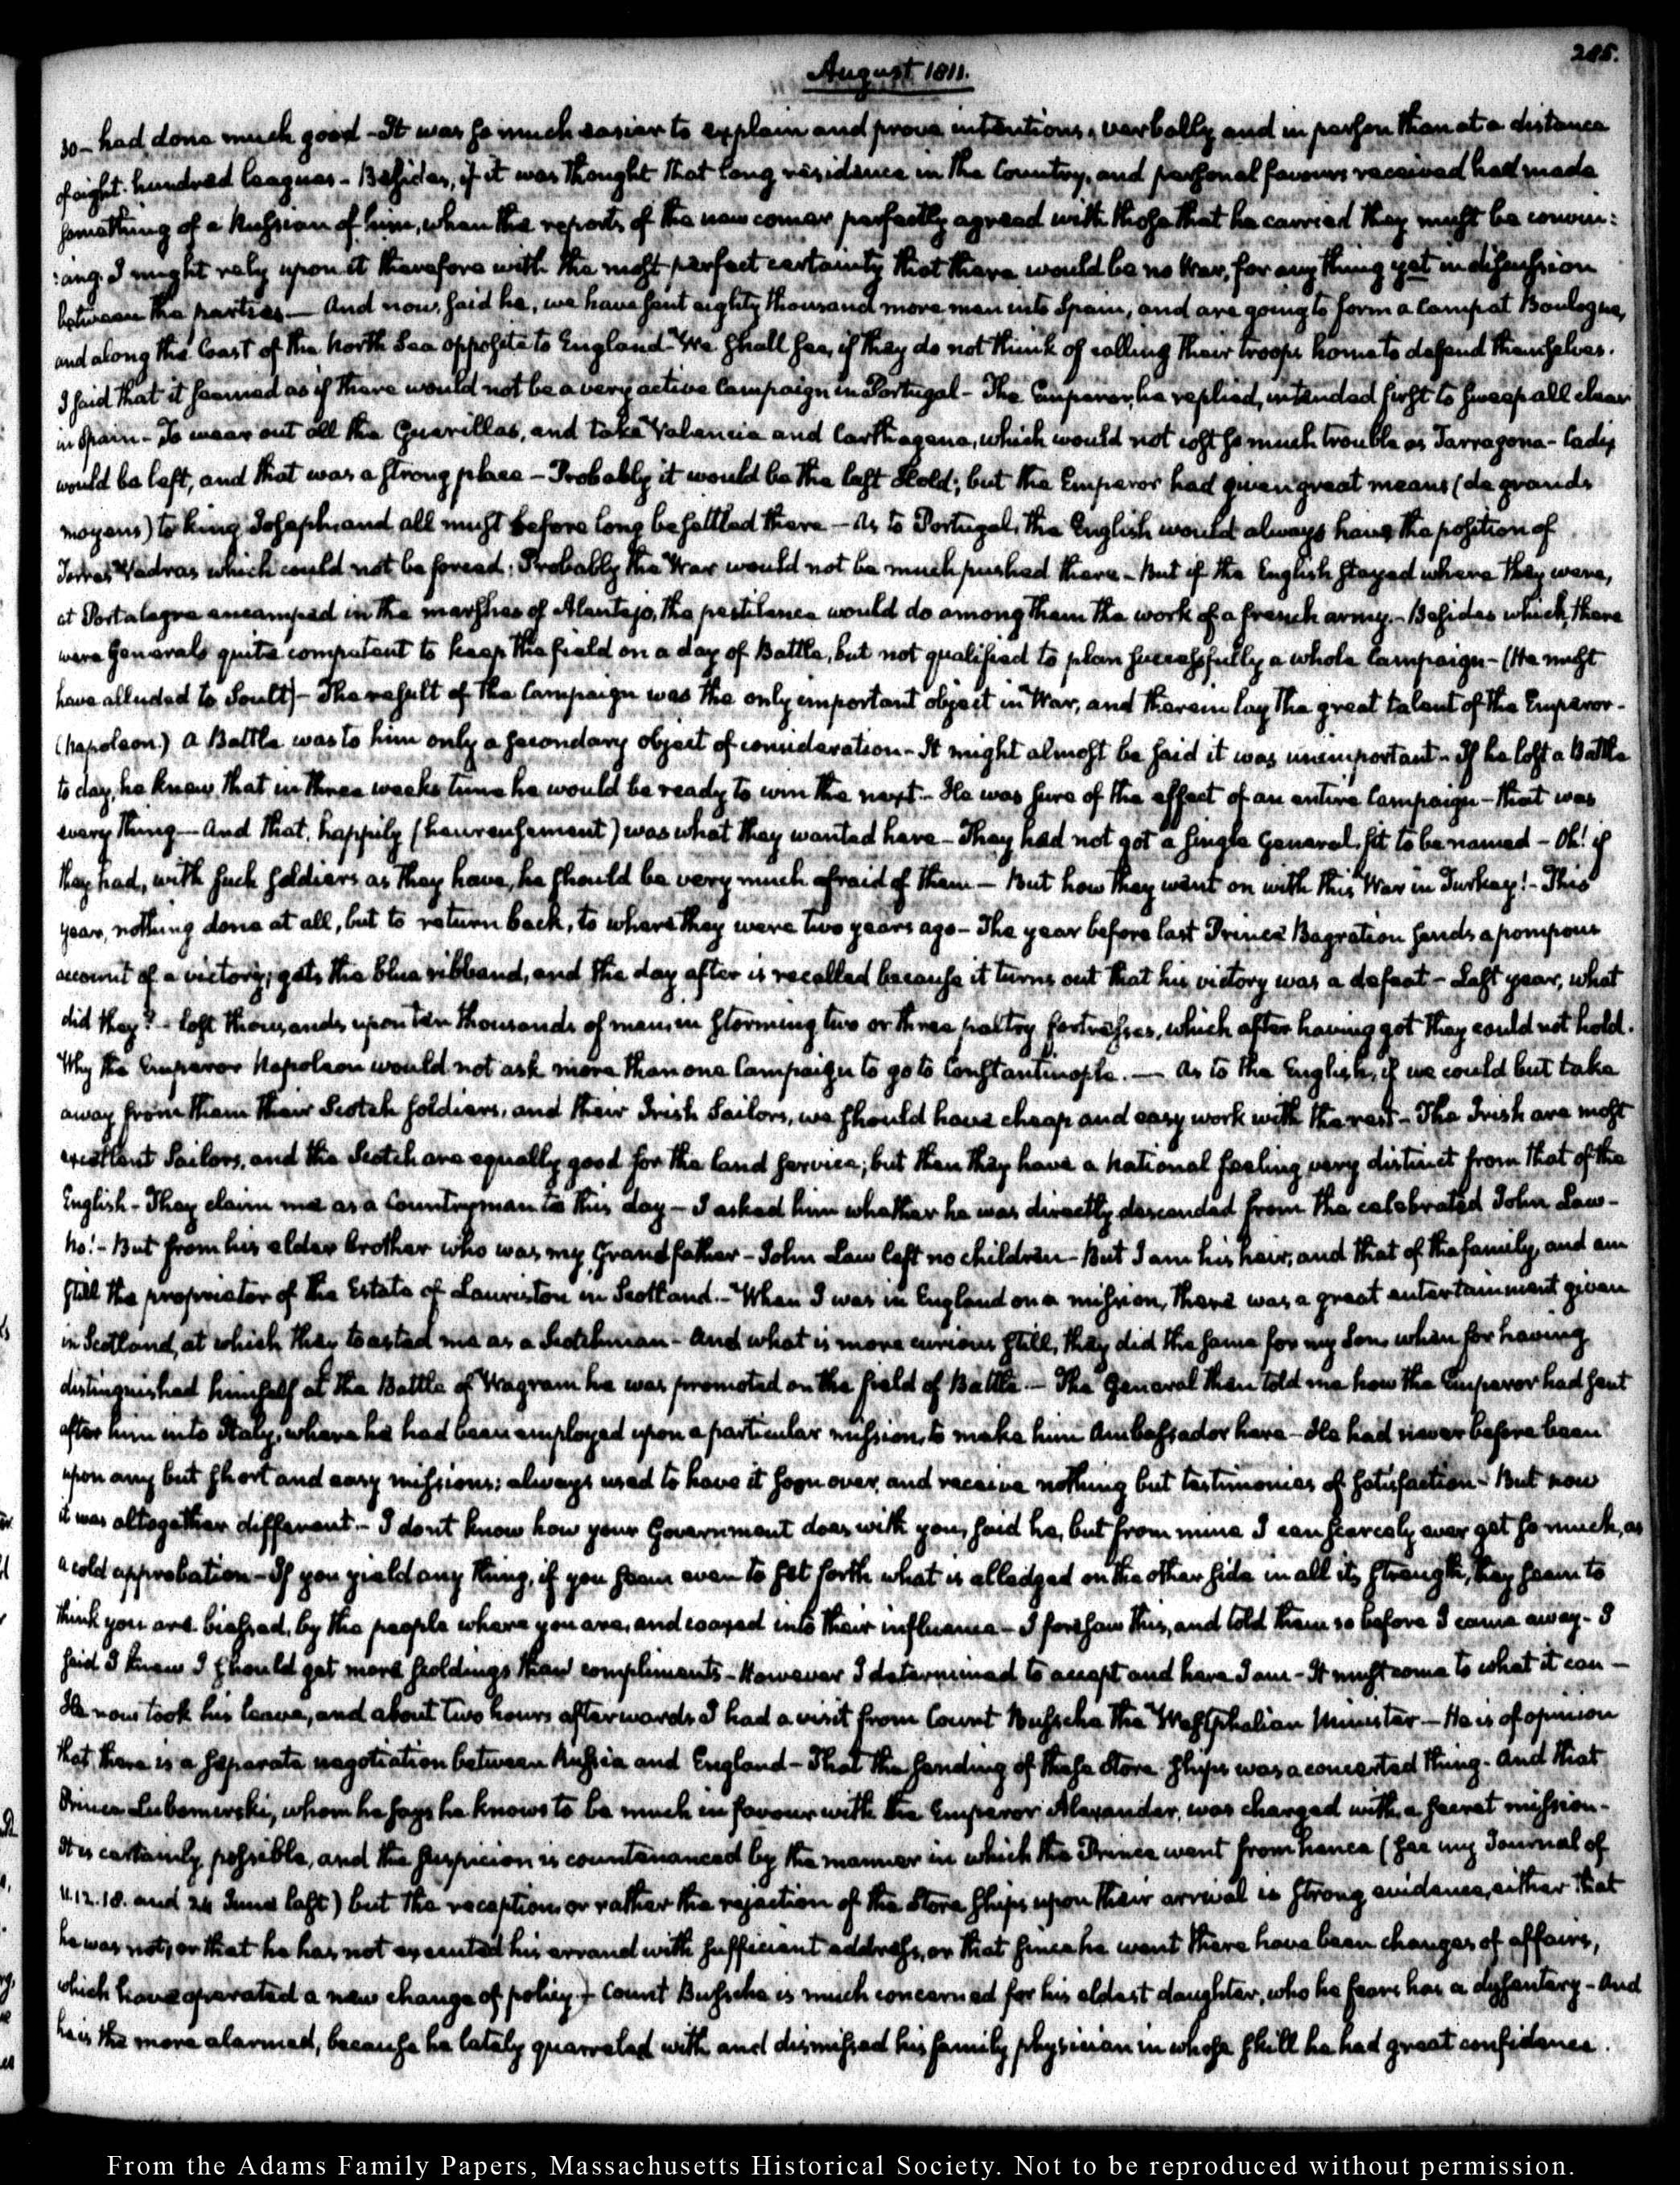 285.
August 1811.
30 — had done much good - It was so much easier to explain and prove intentions, verbally and in person than at a distance
of eight hundred leagues - Besides, if it was thought that long residence in the Country, and personal favours received had made
something of a Russian of him, when the reports of the new comer perfectly agreed with those that he carried they must be convin:
:cing. I might rely upon it therefore with the most perfect certainty that there would be no War, for any thing yet in discussion
between the parties. — And now, said he, we have sent eighty thousand more men into Spain, and are going to form a camp at Boulogne,
and along the Coast of the North Sea opposite to England - We shall see, if they do not think of calling their troops home to defend themselves.
I said that it seemed as if there would not be a very active Campaign in Portugal - The Emperor, he replied, intended first to sweep all clear
in Spain - To wear out all the Guerillas, and take Valencia and Carthagena, which would not cost so much trouble as Tarragona - Cadiz
would be left, and that was a strong place - Probably it would be the last Hold; but the Emperor had given great means (de grands
moyens) to King Joseph, and all must before long be settled there - As to Portugal, the English would always have the position of
Torres Vedras which could not be forced. Probably the War would not be much pushed there - But if the English stayed where they were,
at Portalegre encamped in the marshes of Alentejo, the pestilence would do among them the work of a french army. - Besides which, there
were Generals quite competent to keep the field on a day of Battle, but not qualified to plan successfully a whole Campaign - (He must
have alluded to Soult) - The result of the Campaign was the only important object in War, and therein lay the great talent of the Emperor -
(Napoleon.) A Battle was to him only a secondary object of consideration - It might almost be said it was unimportant - If he lost a Battle
to day, he knew that in three weeks time he would be ready to win the next - He was sure of the effect of an entire Campaign - that was
every thing — And that, happily (heureusement) was what they wanted here - They had not got a single General, fit to be named - Oh! if
they had, with such soldiers as they have, he should be very much afraid of them - But how they went on with this War in Turkey! - This
year, nothing done at all, but to return back, to where they were two years ago - The year before last Prince Bagration sends a pompous
account of a victory; gets the blue ribband, and the day after is recalled because it turns out that his victory was a defeat - Last year, what
did they? - Lost thousands upon ten thousands of men, in storming two or three paltry fortresses, which after having got they could not hold.
Why the Emperor Napoleon would not ask more than one Campaign to go to Constantinople. — As to the English, if we could but take
away from them their Scotch soldiers, and their Irish Sailors, we should have cheap and easy work with the rest - The Irish are most
excellent Sailors, and the Scotch are equally good for the land service; but then they have a National feeling very distinct from that of the
English - They claim me as a Countryman to this day - I asked him whether he was directly descended from the celebrated John Law -
No! - But from his elder brother who was my Grandfather - John Law left no children - But I am his heir, and that of the family, and am
still the proprietor of the Estate of Lauriston in Scotland. - When I was in England on a mission, there was a great entertainment given
in Scotland, at which they toasted me as a Scotchman - And what is more curious still, they did the same for my Son, when for having
distinguished himself at the Battle of Wagram he was promoted on the field of Battle. — The General then told me how the Emperor had sent
after him into Italy, where he had been employed upon a particular mission, to make him Ambassador here - He had never before been
upon any but short and easy missions; always used to have it soon over, and receive nothing but testimonies of satisfaction - But now
it was altogether different. - I dont know how your Government does with you, said he, but from mine I can scarcely ever get so much, as
a cold approbation - If you yield any thing, if you seem even to set forth what is alledged on the other side in all its strength, they seem to
think you are biassed, by the people where you are, and coaxed into their influence - I foresaw this, and told them so before I came away - I
said I knew I should get more scoldings than compliments - However I determined to accept and here I am - It must come to what it can —
He now took his leave, and about two hours afterwards I had a visit from Count Bussche the Westphalian Minister - He is of opinion
that there is a separate negotiation between Russia and England - That the sending of these Store Ships was a concerted thing. And that
Prince Lubomirski, whom he says he knows to be much in favour with the Emperor Alexander, was charged with a secret mission -
It is certainly possible, and the suspicion is countenanced by the manner in which the Prince went from hence (see my Journal of
11. 12. 18. and 24 June last) but the reception, or rather the rejection of the Store Ships upon their arrival is strong evidence, either that
he was not, or that he has not executed his errand with sufficient address, or that since he went there have been changes of affairs,
which have operated a new change of policy - Count Bussche is much concerned for his eldest daughter, who he fears has a dysentery - And
he is the more alarmed, because he lately quarreled with and dismissed his family physician in whose skill he had great confidence.
From the Adams Family Papers, Massachusetts Historical Society. Not to be reproduced without permission.